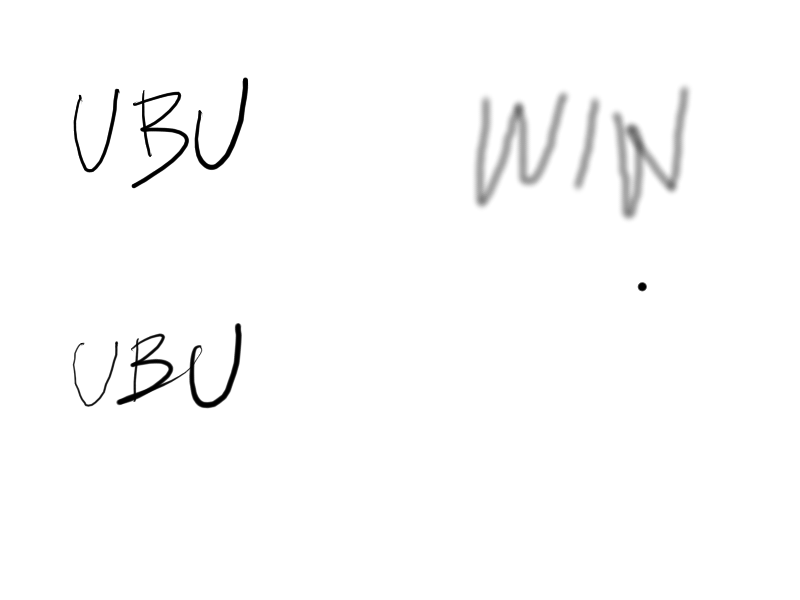 UBU
WIN
UBU